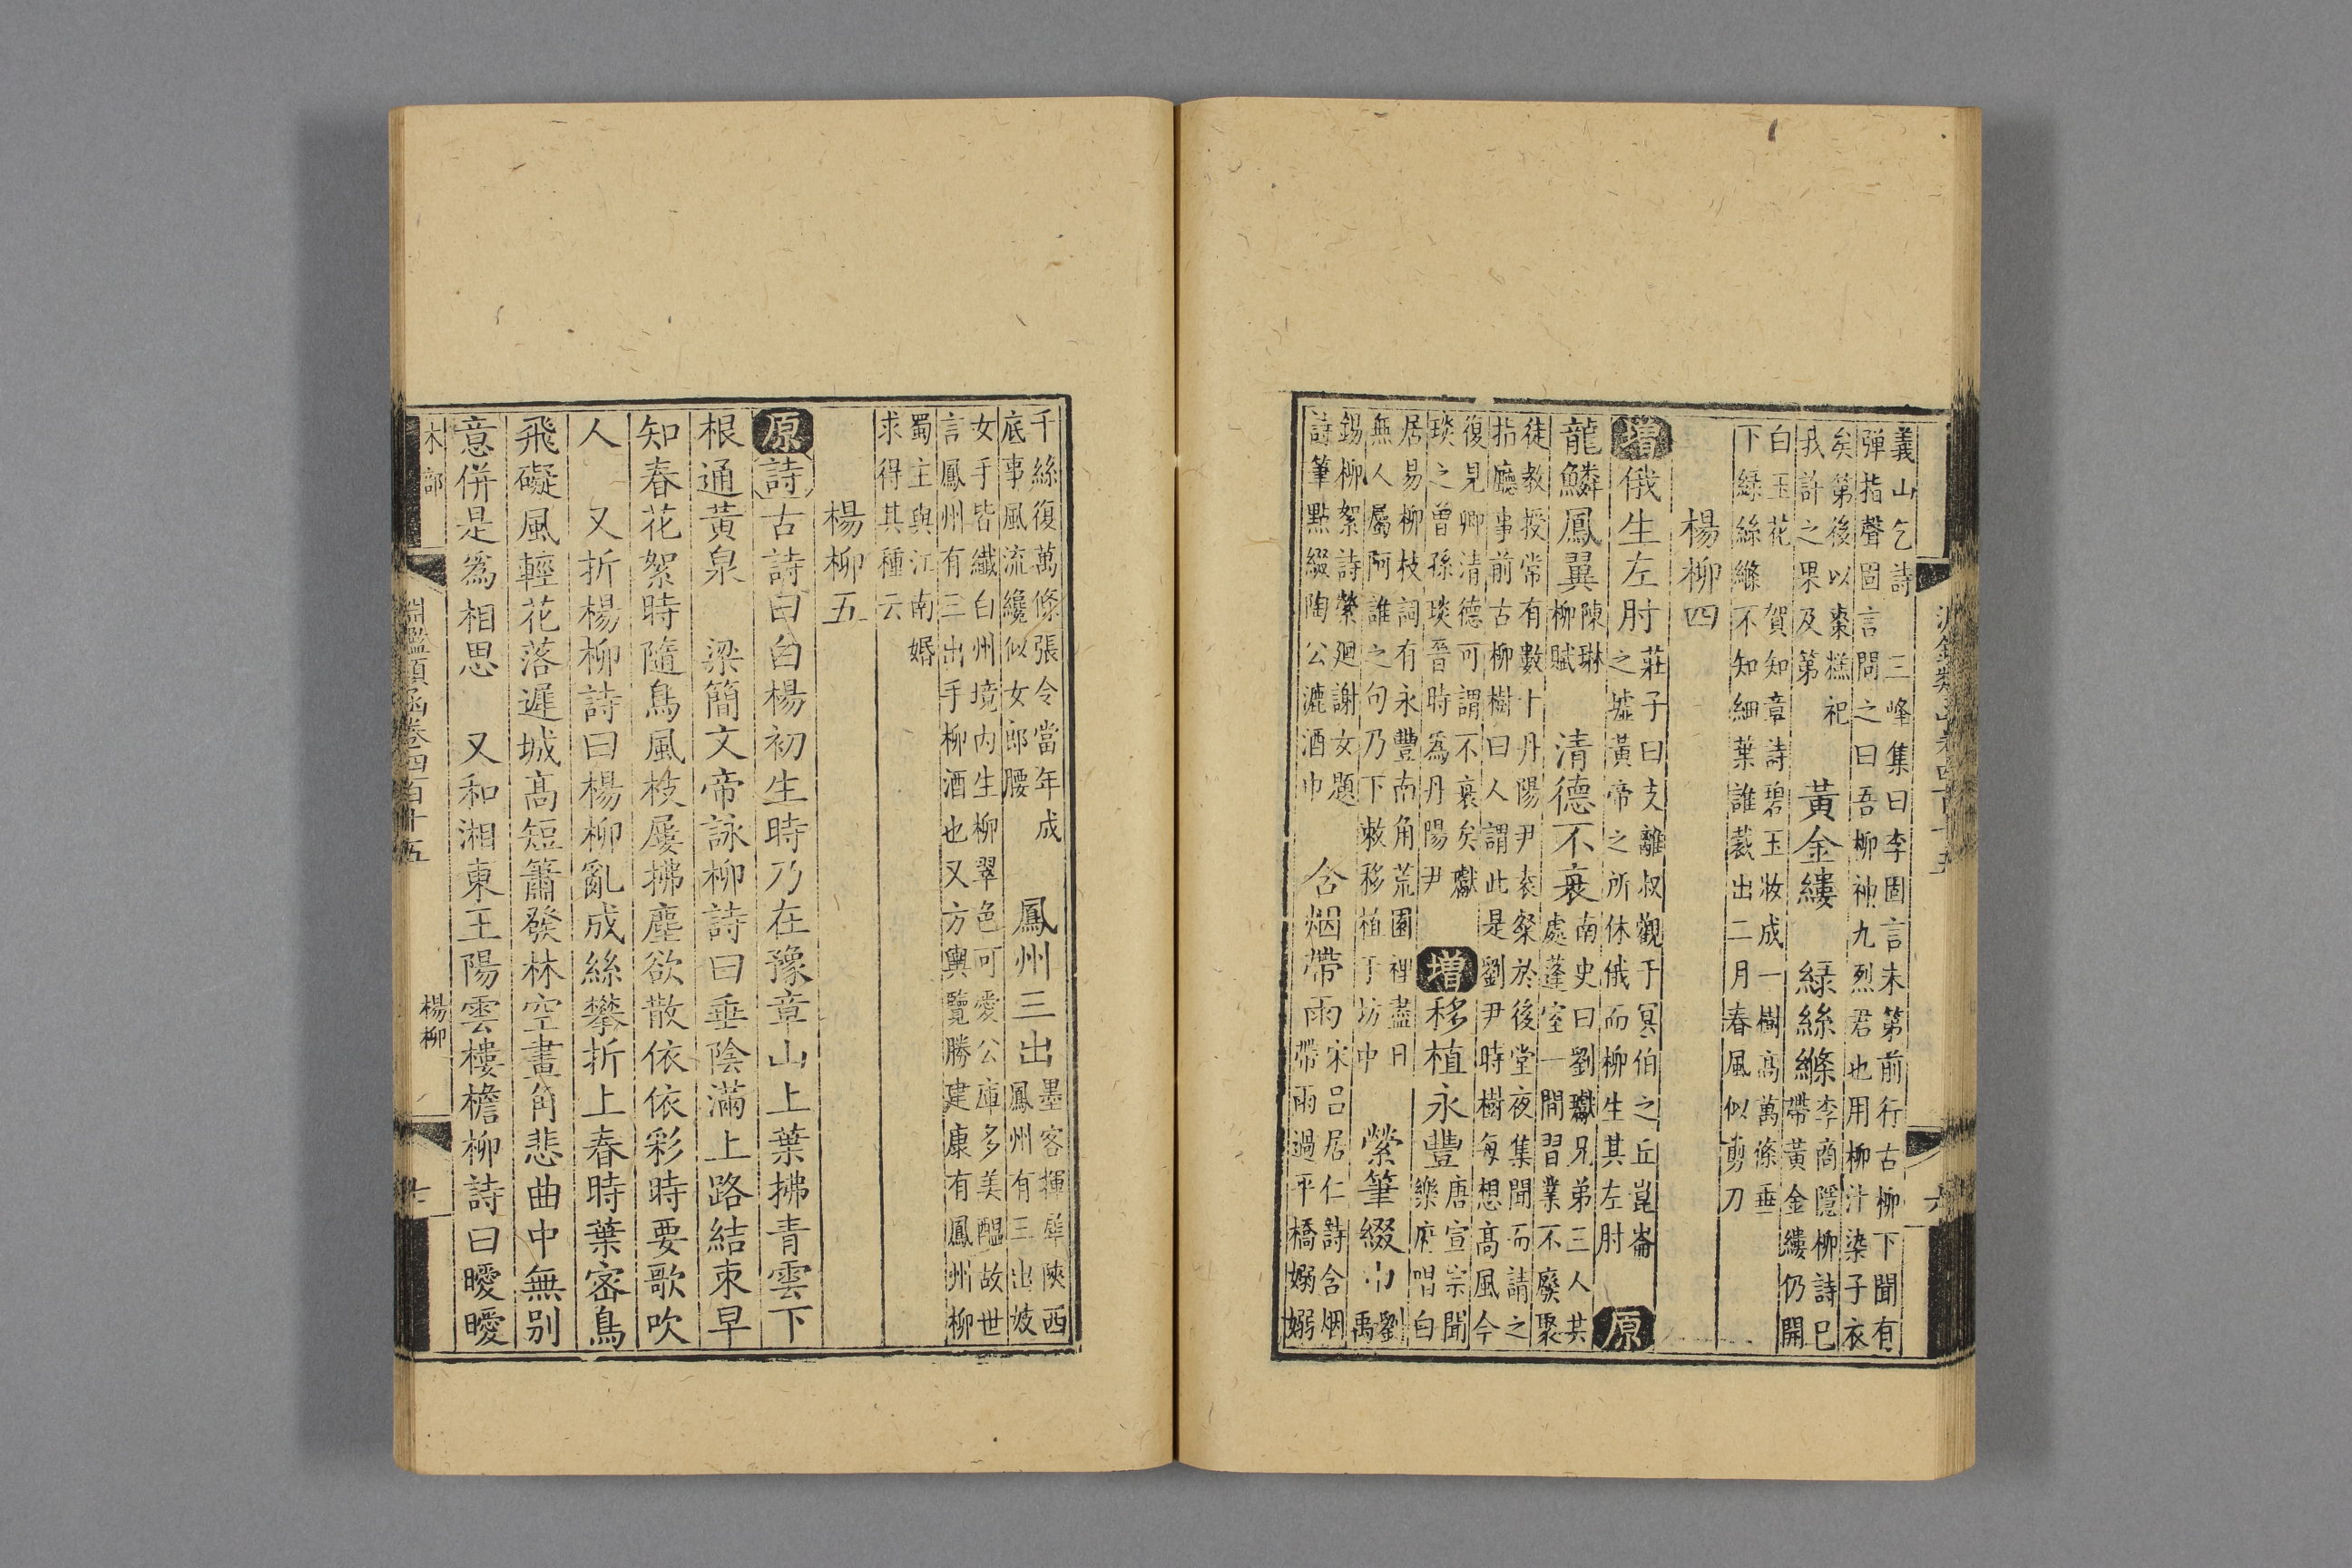 義山乞詩　三峰集曰李固言未第前行古柳下聞有
彈指聲固言問之曰吾柳神九烈君也用柳汁染子衣
矣第後以棗糕祀
我許之果及第
黃金縷　綠絲縧
李商隱柳詩已
帶黃金縷仍開
白玉花　賀知章詩碧玉妝成一樹高萬條垂
下綠絲縧不知細葉誰裁出二月春風似剪刀
楊柳四
增俄生左肘
莊子曰支離叔觀于冥伯之丘崑崙
之墟黃帝之所休俄而柳生其左肘
原
龍鱗鳳翼
陳琳
柳賦
清德不衰
南史曰劉瓛兄弟三人共
處蓬室一間習業不廢聚
徒教授常有數十丹陽尹袁粲於後堂夜集聞而請之
指廳事前古柳樹曰人謂此是劉尹時樹每想高風今
復見卿清德可謂不衰矣瓛
琰之曾孫琰晉時為丹陽尹
增移植永豐
唐宣宗聞
樂府唱白
居易柳枝詞有永豐南角荒園裡盡日
無人屬阿誰之句乃下敕移植于坊中
縈筆綴巾
劉
禹
錫柳絮詩縈廻謝女題
詩筆點綴陶公漉酒巾
含烟帶雨
宋呂居仁詩含烟
帶雨過平橋嫋嫋
千絲復萬條張令當年成
底事風流纔似女郎腰
鳳州三出
墨客揮犀陝西
鳳州有三出妓
女手皆纖白州境內生柳翠色可愛公庫多美醞故世
言鳳州有三出手柳酒也又方輿覽勝建康有鳳州柳
蜀主與江南婚
求得其種云
楊柳五
原詩古詩曰白楊初生時乃在豫章山上葉拂青雲下
根通黃泉　梁簡文帝詠柳詩曰垂陰滿上路結束早
知春花絮時隨鳥風枝屢拂塵欲散依依彩時要歌吹
人　又折楊柳詩曰楊柳亂成絲攀折上春時葉密鳥
飛礙風輕花落遲城高短簫發林空畫角悲曲中無別
意併是為相思　又和湘東王陽雲樓檐柳詩曰曖曖
木部
淵鑑類函卷四百十五
楊柳
七